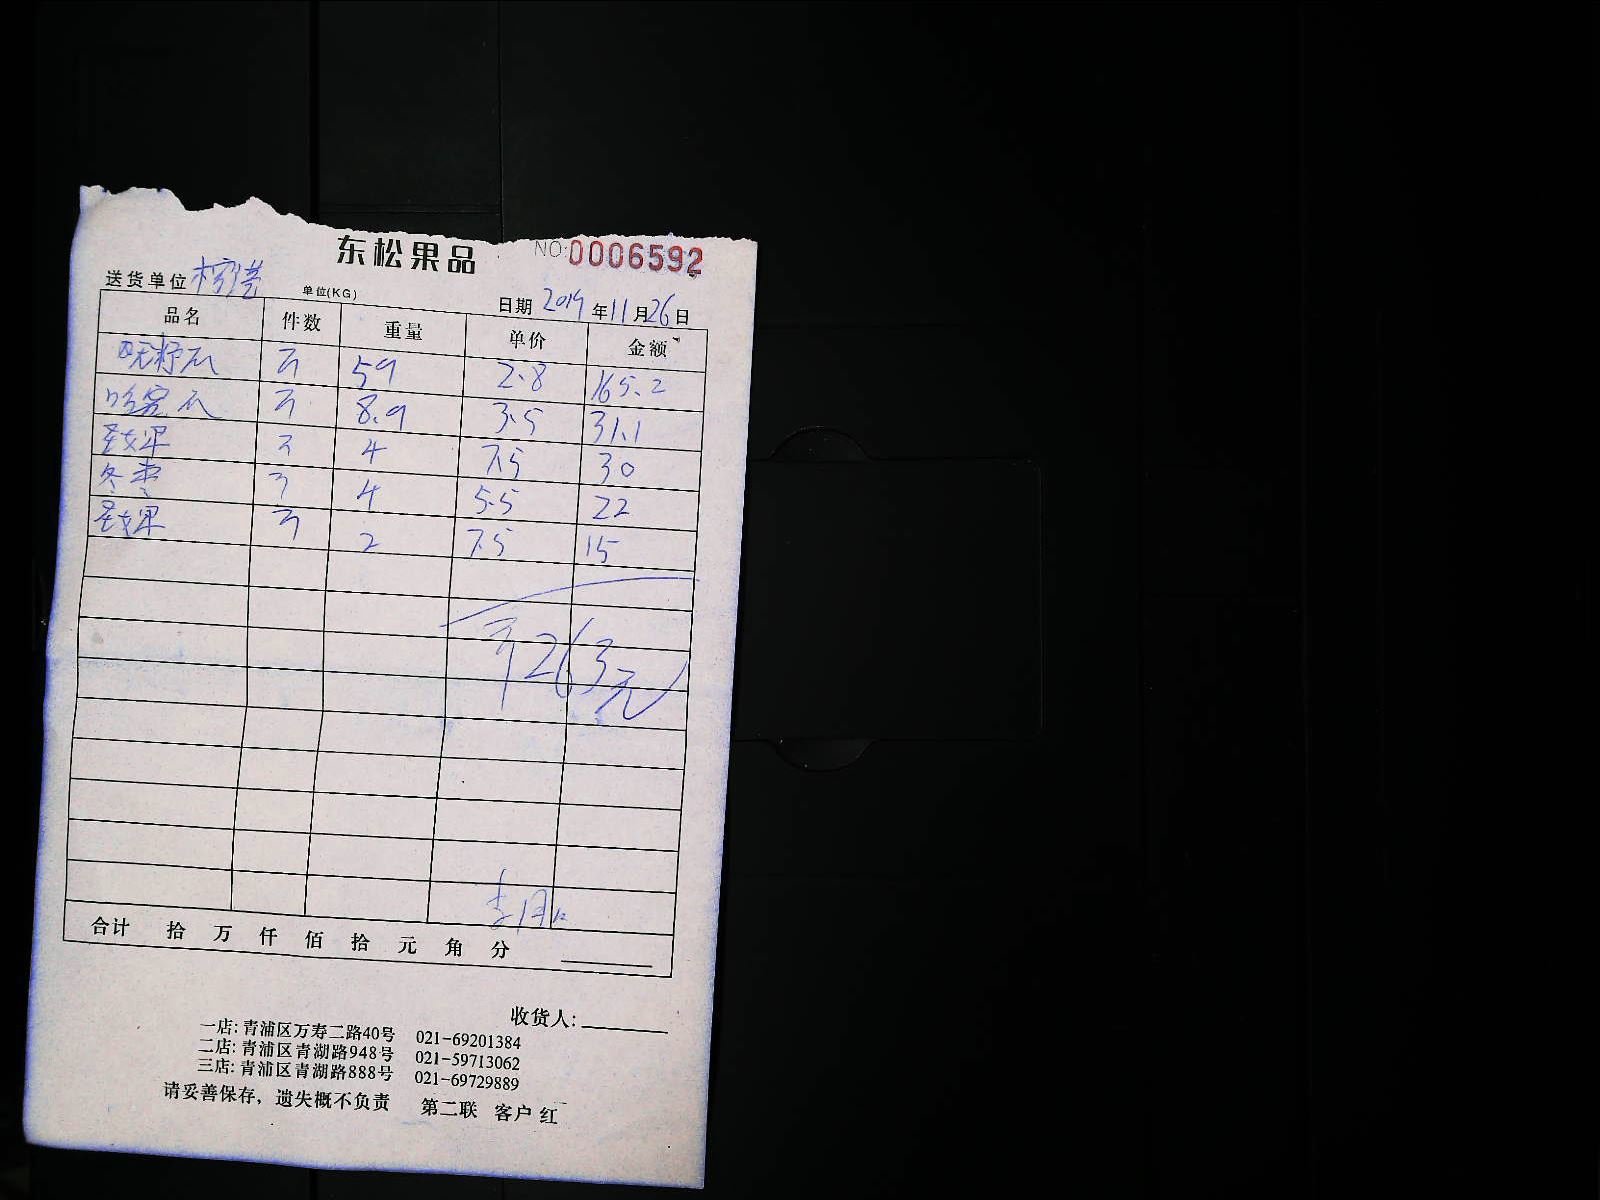 东松果品 NO:0006592
送货单位
单位(KG) 日期 2019年11月26日
品名 件数 重量 单价 金额
无籽瓜 59 2.8 165.2
哈密瓜 8.9 3.5 31.1
圣女果 4 7.5 30
冬枣 4 5.5 22
圣女果 2 7.5 15
263元
合计 拾 万 仟 佰 拾 元 角 分
收货人:
一店: 青浦区万寿二路40号 021-69201384
二店: 青浦区青湖路948号 021-59713062
三店: 青浦区青湖路888号 021-69729889
请妥善保存，遗失概不负责 第二联 客户 红